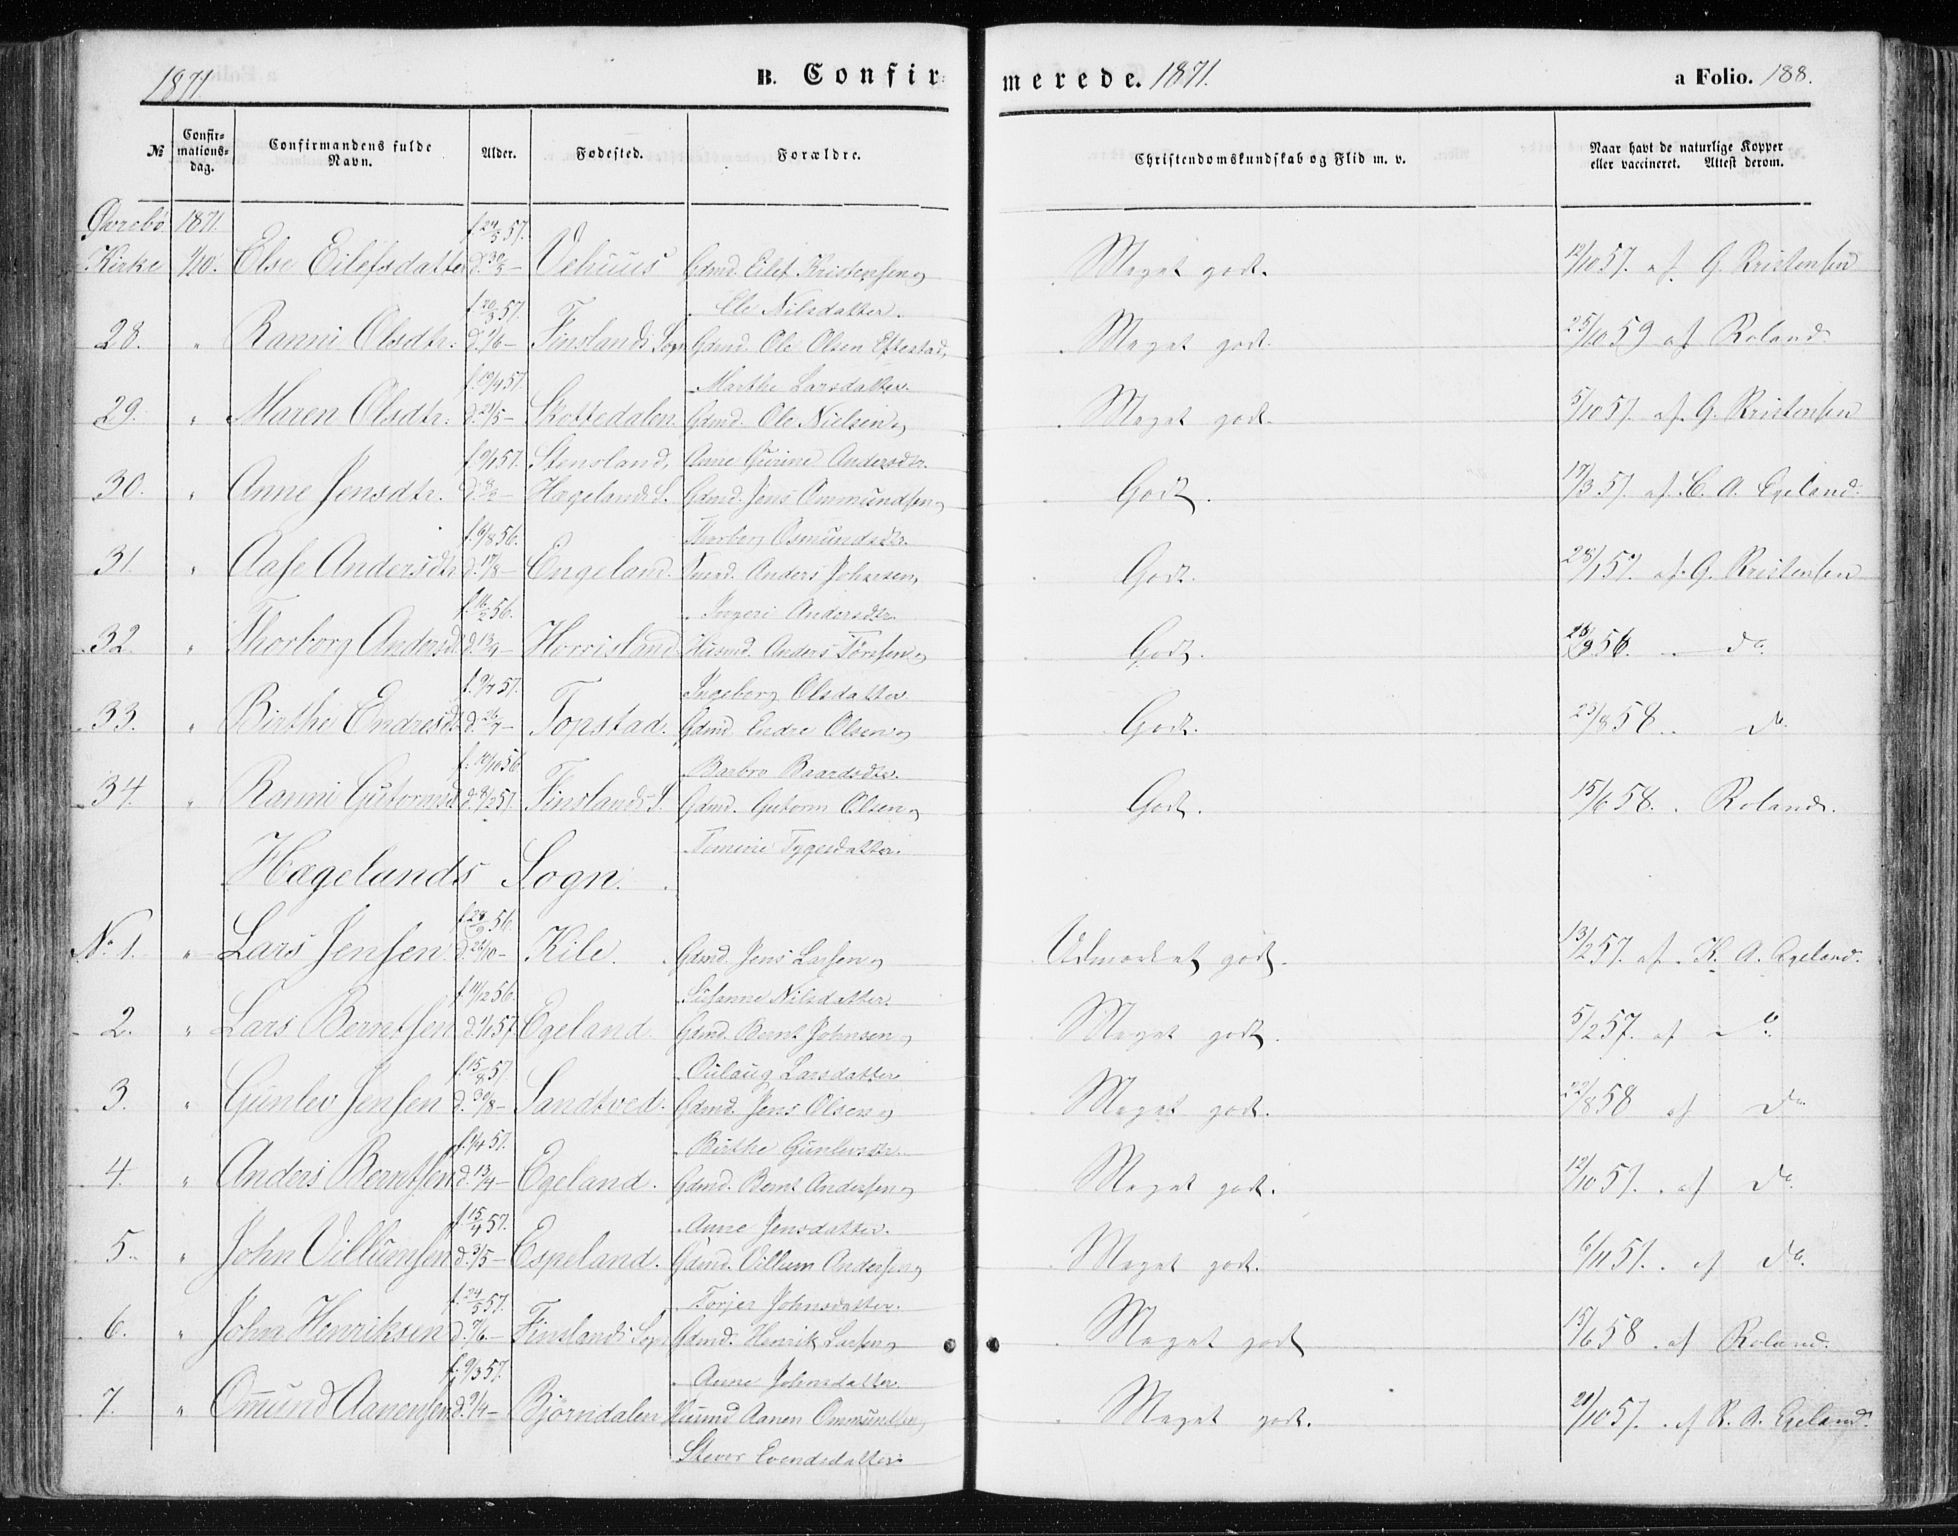 1871. B. Confirmerede. 1871. a Folio. 188.
№ Confirmationsdag. Confirmandens fulde Navn. Alder. Fødested. Forældre. Christendomskundskab og Flid m. v. Naar havt de naturlige Kopper eller vaccineret. Attest derom.
Øvrebø 1871.
Kirke 1/10. Else Eilefsdatter f. 24/3 57. d. 30/3 — Vehuus Gdmd. Eilef Kristensen og Meget godt. 12/10 57. af G. Kristensen
Ele Nilsdatter.
28. " Ranni Olsdtr. f. 20/3 57. d. 1/6 — Finslands Sogn Gdmd. Ole Olsen Eftestad, Meget godt. 25/10 59 af Roland
Marthe Larsdatter.
29. " Maren Olsdtr. f. 19/4 57. d. 21/5 — Skottedalen. Gdmd. Ole Nielsen og Meget godt. 5/10 57. af G. Kristensen
Anne Gurine Andersdtr.
30. " Anne Jensdtr. f. 9/1 57. d. 8/2 — Stensland, Hægelands S. Gdmd. Jens Ommundsen og Godt. 17/3 57. af C. A. Egeland.
Thorborg Osmundsdtr.
31. " Aase Andersdtr f. 6/8 56. d. 17/8 — Engeland. Anders Johnsen, Godt. 28/1 59. af G. Kristensen
Ingeri Andersdtr
32. " Thorborg Andersd f. 16/2 56. d. 13/4 — Horrisland. Husmd. Anders Törresen og Godt. 56. — do.
Ingeborg Olsdatter
33. " Birthe Endresdt f. 9/7 57. d. 26/7 — Topstad. Gdmd. Endre Olsen og Godt. 23/8 58. do.
Barbro Baardsdtr.
34. " Ranni Gutormsd f. 10/10 56 d. 8/2 57. Finslands S. Gdmd. Gutorm Olsen og Godt. 15/6 58. Roland.
Tomine Tygesdatter.
Hægelands Sogn.
No 1. " Lars Jensen f. 28/9 56. d. 26/10 — Kile. Gdmd. Jens Larsen og Udmærket godt. 13/2 57. af K. A. Egeland.
Susanne Nilsdatter.
2. " Lars Berntsen f. 11/12 56. d. 1/1 57. Egeland. Gdmd. Bernt Johnsen og Meget godt. 5/2 57. af do.
Oulaug Larsdatter
3. " Gunlev Jensen f. 15/8 57. d. 30/8 — Sandtved. Gdmd. Jens Olsen og Meget godt. 22/8 58 af do
Birthe Gunlevsdtr.
4. " Anders Berntsen f. 9/4 57. d. 13/4 — Egeland. Gdmd. Bernt Andersen og Meget godt. 12/10 57. af do.
Anne Jensdatter.
5. " John Villumsen f. 15/4 57. d. 3/5 — Espeland. Gdmd. Villum Andersen og Meget godt. 6/11 57. af do.
Torjer Johnsdatter.
6. " John Henriksen f. 24/5 57. d. 7/6 — Finslands Sogn Gdmd. Henrik Larsen og Meget godt 15/6 58 af Roland.
Anne Johnsdatter.
7. " Omund Aanensen f. 9/3 57. d. 9/4 — Bjørndalen Husmd Aanen Ommundsen og Meget godt. 20/10 57. af K. A. Egeland.
Siever Evendsdatter